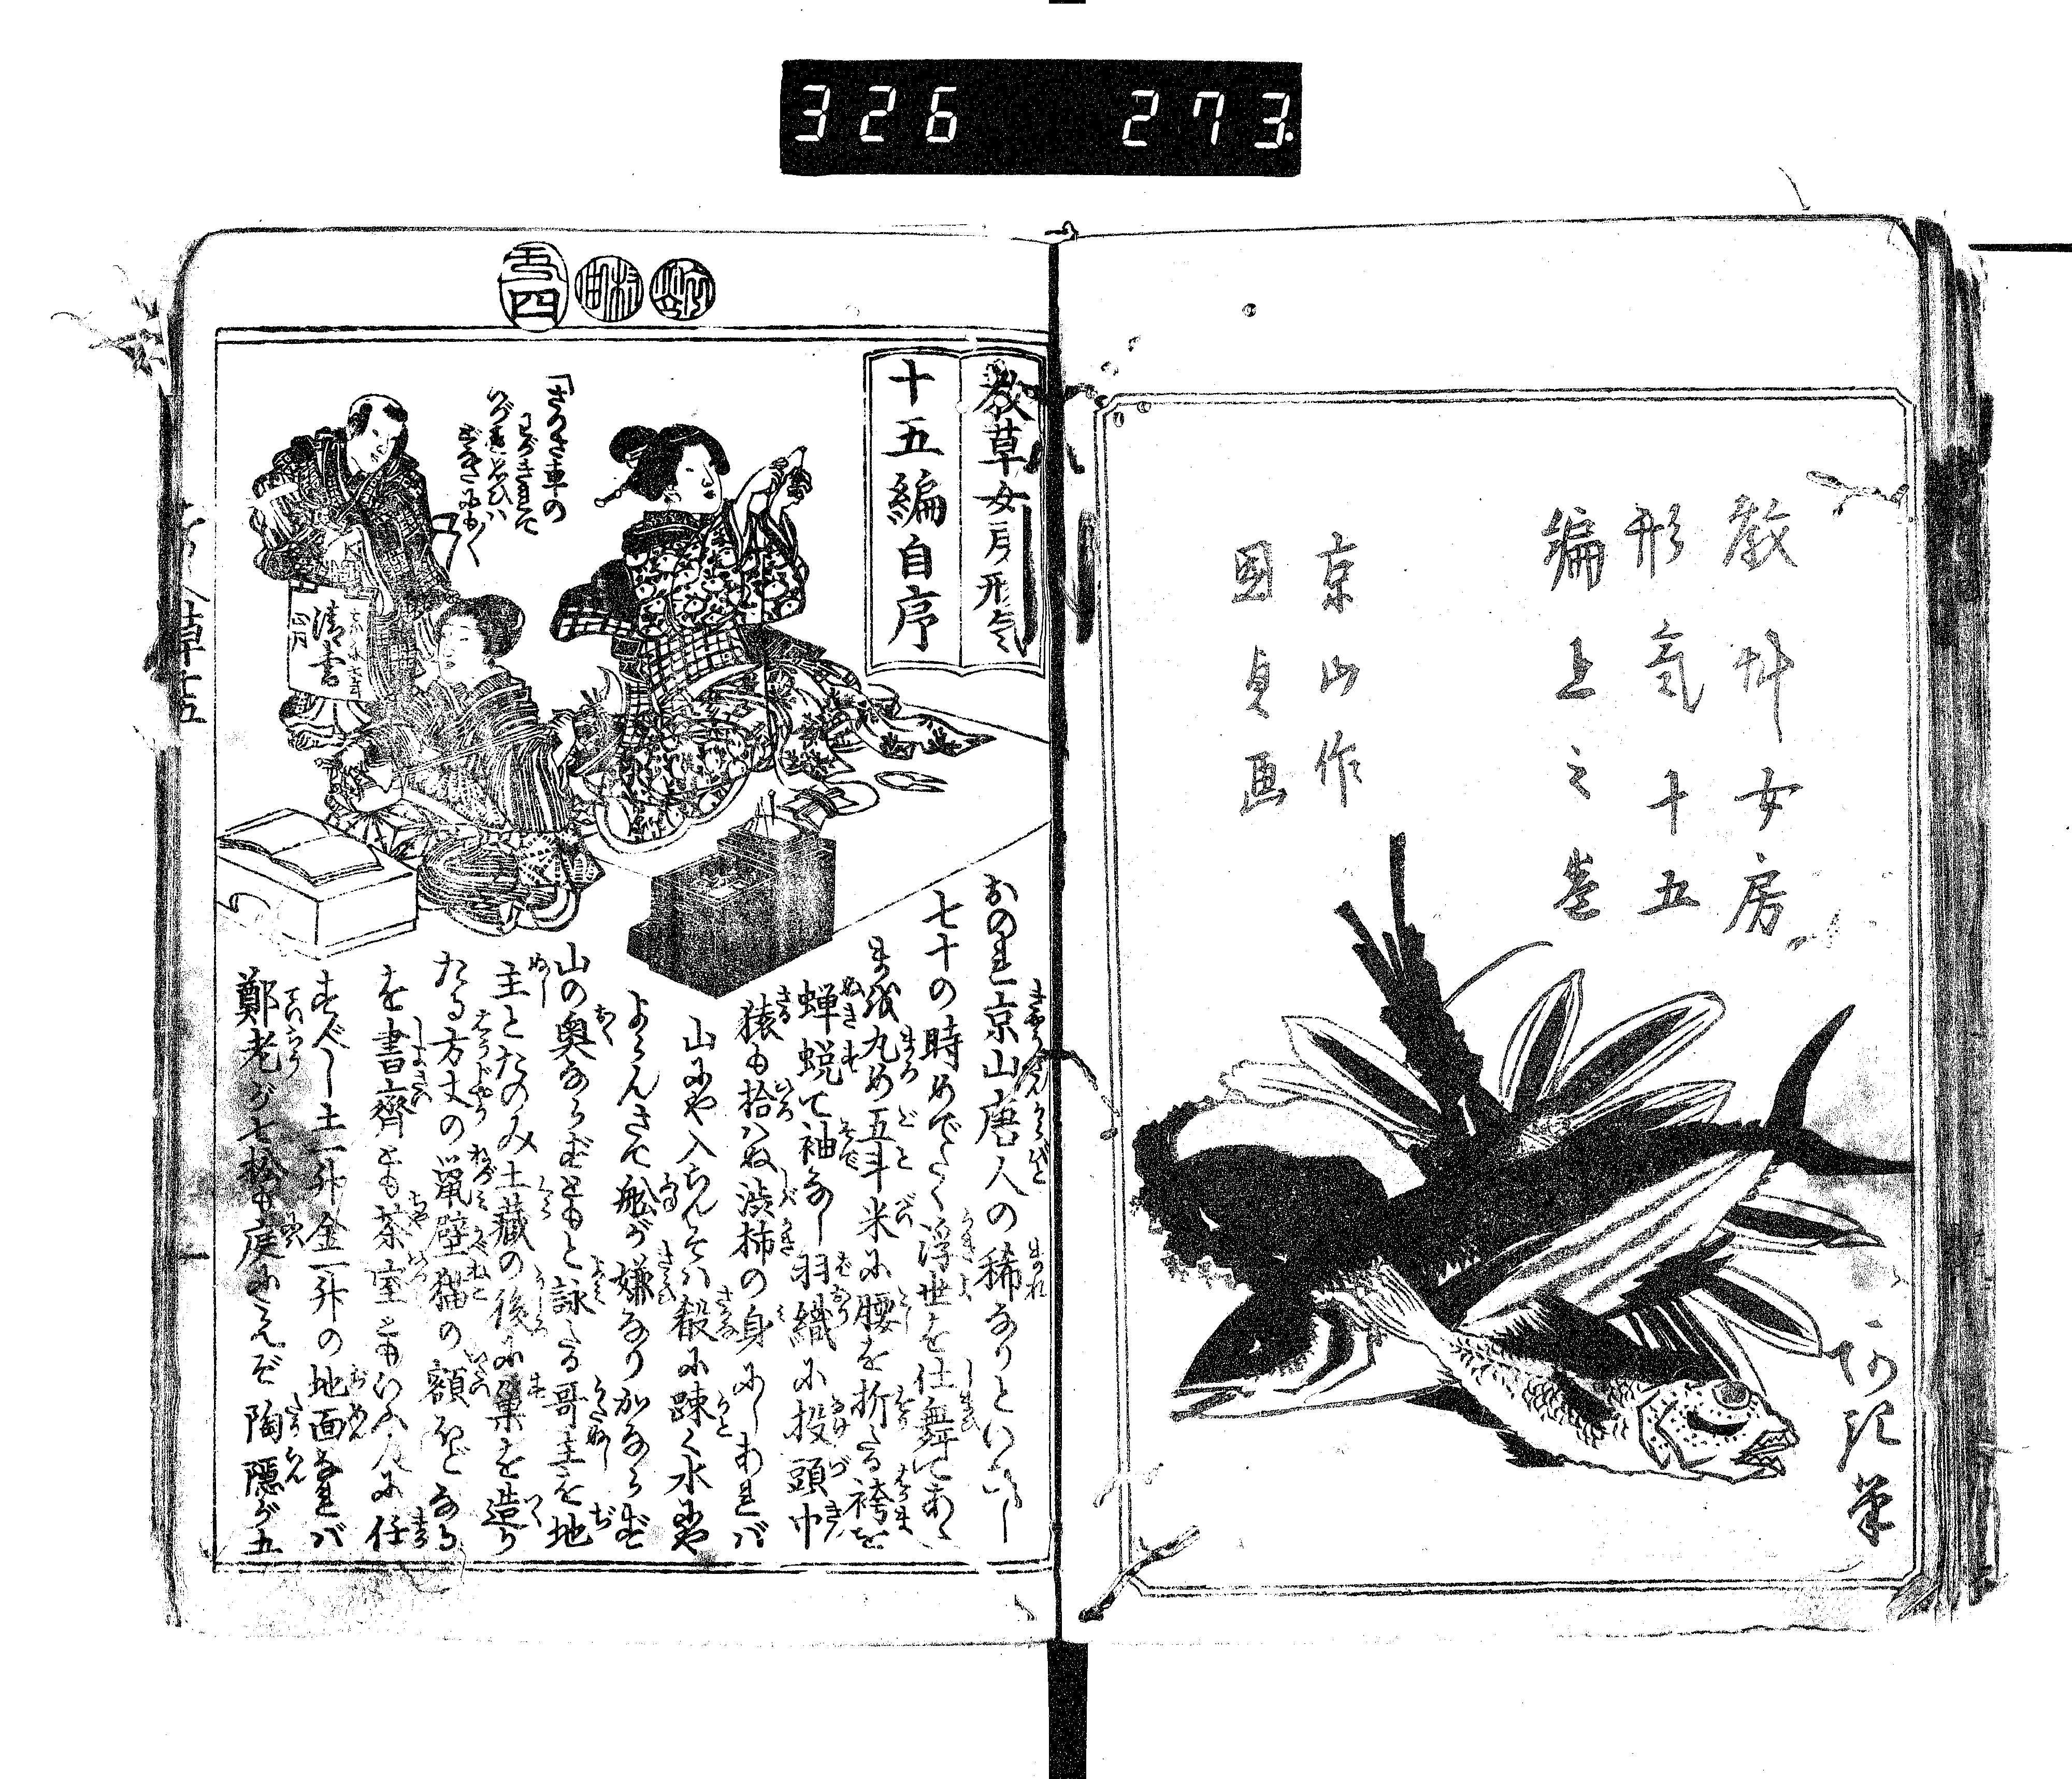 326 273
教艸女房
形気十五
編上之巻
京山作
国貞画
教草女房形気
十五編自序
清書
おのれ京山唐人の稀なりといひし
七十の時めでたく浮世を仕舞てあ
ま紙丸め五斗米に腰を折たる袴を
蝉蛻て袖なし羽織に投頭巾
猿も拾はぬ渋柿の身にしあれバ
山にや入らんそハ穀に疎く水にや
よらんさて舩が嫌なり加ならず
山の奥ならずともと詠たる哥主を地
主とたのみ土蔵の後に巣を造り
たる方丈の鼠壁猫の額ほどなる
を書齊とも茶室ともいふ人に任
すべし土一升金一升の地面なれバ
鄭老が七松も庭にうゑぞ陶隱が五